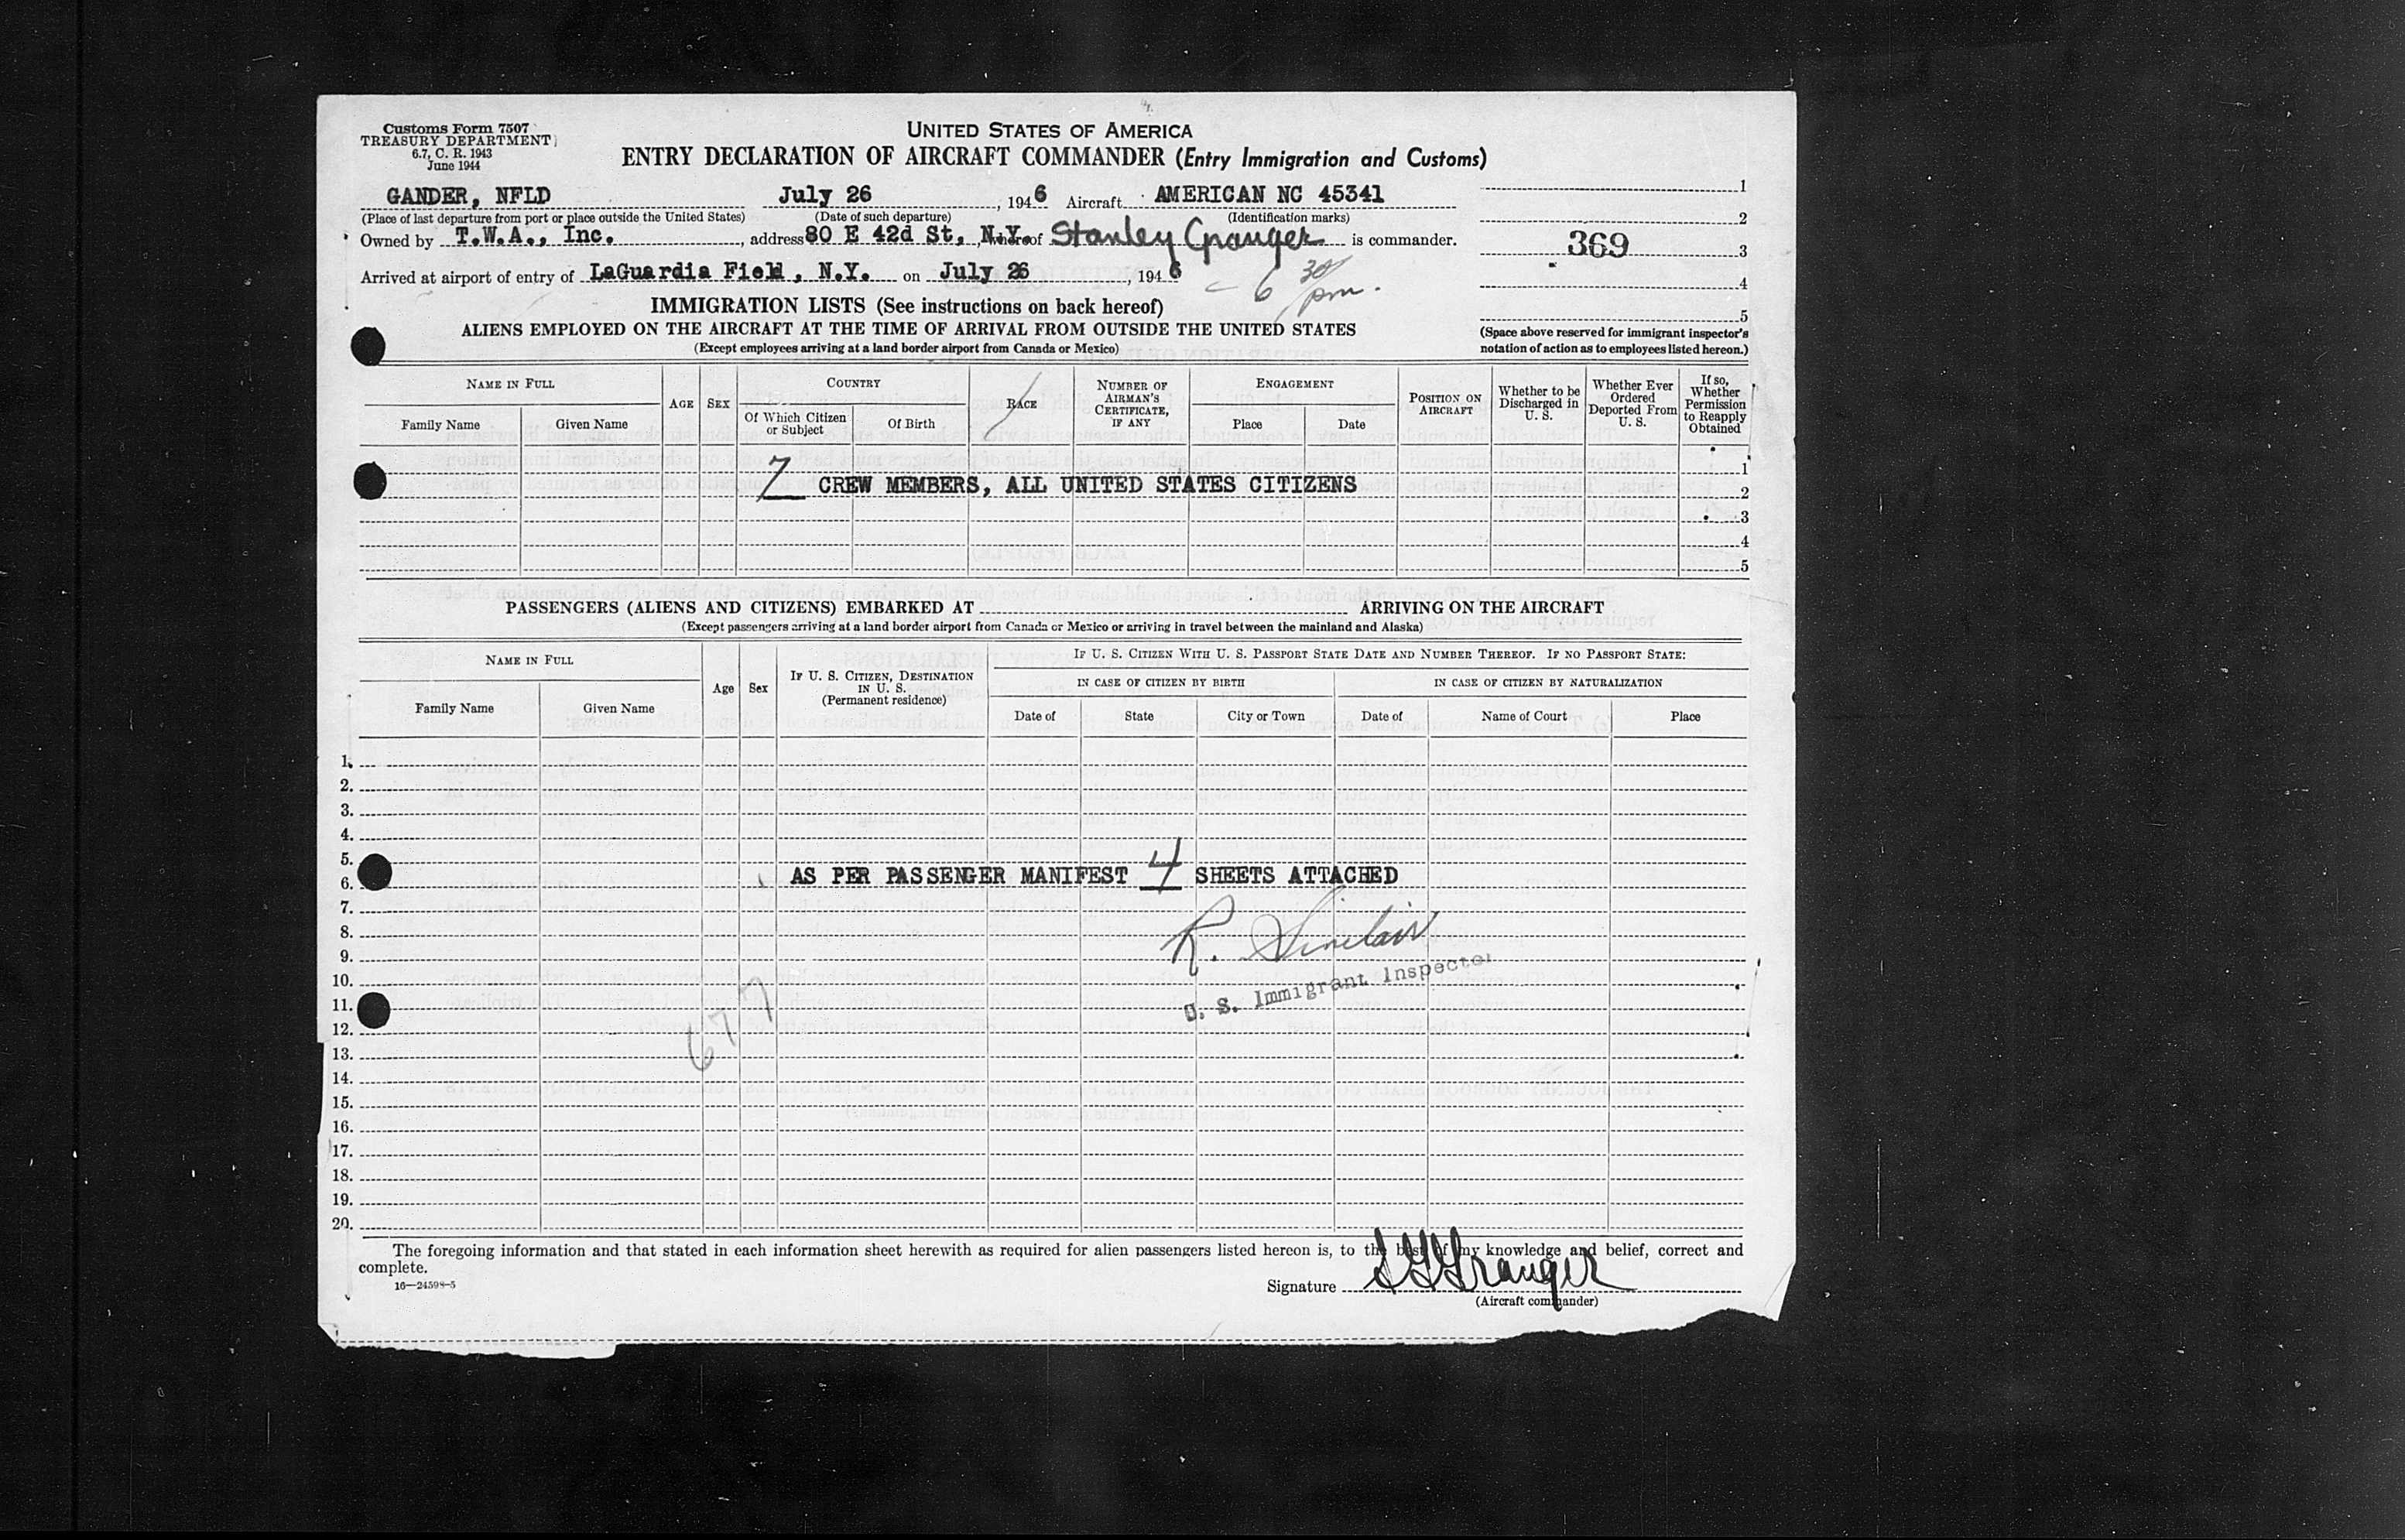 Customs Form 7507
TREASURY DEPARTMENT
6.7, C. R. 1943
June 1944
UNITED STATES OF AMERICA
ENTRY DECLARATION OF AIRCRAFT COMMANDER (Entry Immigration and Customs)
GANDER, NFLD July 26, 1946 Aircraft AMERICAN NC 45341
(Place of last departure from port or place outside the United States) (Date of such departure) (Identification marks)
Owned by T.W.A., Inc., address 80 E 42d St, N.Y. whereof Stanley Granger is commander.
Arrived at airport of entry of LaGuardia Field, N.Y. on July 26, 1946
6 30/pm.
1
2
369 3
4
5
(Space above reserved for immigrant inspector's notation of action as to employees listed hereon.)
IMMIGRATION LISTS (See instructions on back hereof)
ALIENS EMPLOYED ON THE AIRCRAFT AT THE TIME OF ARRIVAL FROM OUTSIDE THE UNITED STATES
(Except employees arriving at a land border airport from Canada or Mexico)
NAME IN FULL
Family Name Given Name
AGE SEX
COUNTRY
Of Which Citizen or Subject Of Birth
RACE
NUMBER OF AIRMAN'S CERTIFICATE, IF ANY
ENGAGEMENT
Place Date
POSITION ON AIRCRAFT
Whether to be Discharged in U. S.
Whether Ever Ordered Deported From U. S.
If so, Whether Permission to Reapply Obtained
1
7 CREW MEMBERS, ALL UNITED STATES CITIZENS 2
3
4
5
PASSENGERS (ALIENS AND CITIZENS) EMBARKED AT ARRIVING ON THE AIRCRAFT
(Except passengers arriving at a land border airport from Canada or Mexico or arriving in travel between the mainland and Alaska)
NAME IN FULL
Family Name Given Name
Age Sex
IF U. S. CITIZEN, DESTINATION IN U. S.
(Permanent residence)
IF U. S. CITIZEN WITH U. S. PASSPORT STATE DATE AND NUMBER THEREOF. IF NO PASSPORT STATE:
IN CASE OF CITIZEN BY BIRTH IN CASE OF CITIZEN BY NATURALIZATION
Date of State City or Town Date of Name of Court Place
1.
2.
3.
4.
5.
6. AS PER PASSENGER MANIFEST 4 SHEETS ATTACHED
7.
8. R. Sinclair
9.
10. U. S. Immigrant Inspector
11.
12. 677
13.
14.
15.
16.
17.
18.
19.
20.
The foregoing information and that stated in each information sheet herewith as required for alien passengers listed hereon is, to the best of my knowledge and belief, correct and
complete.
16—24598-5
Signature SGGranger
(Aircraft commander)